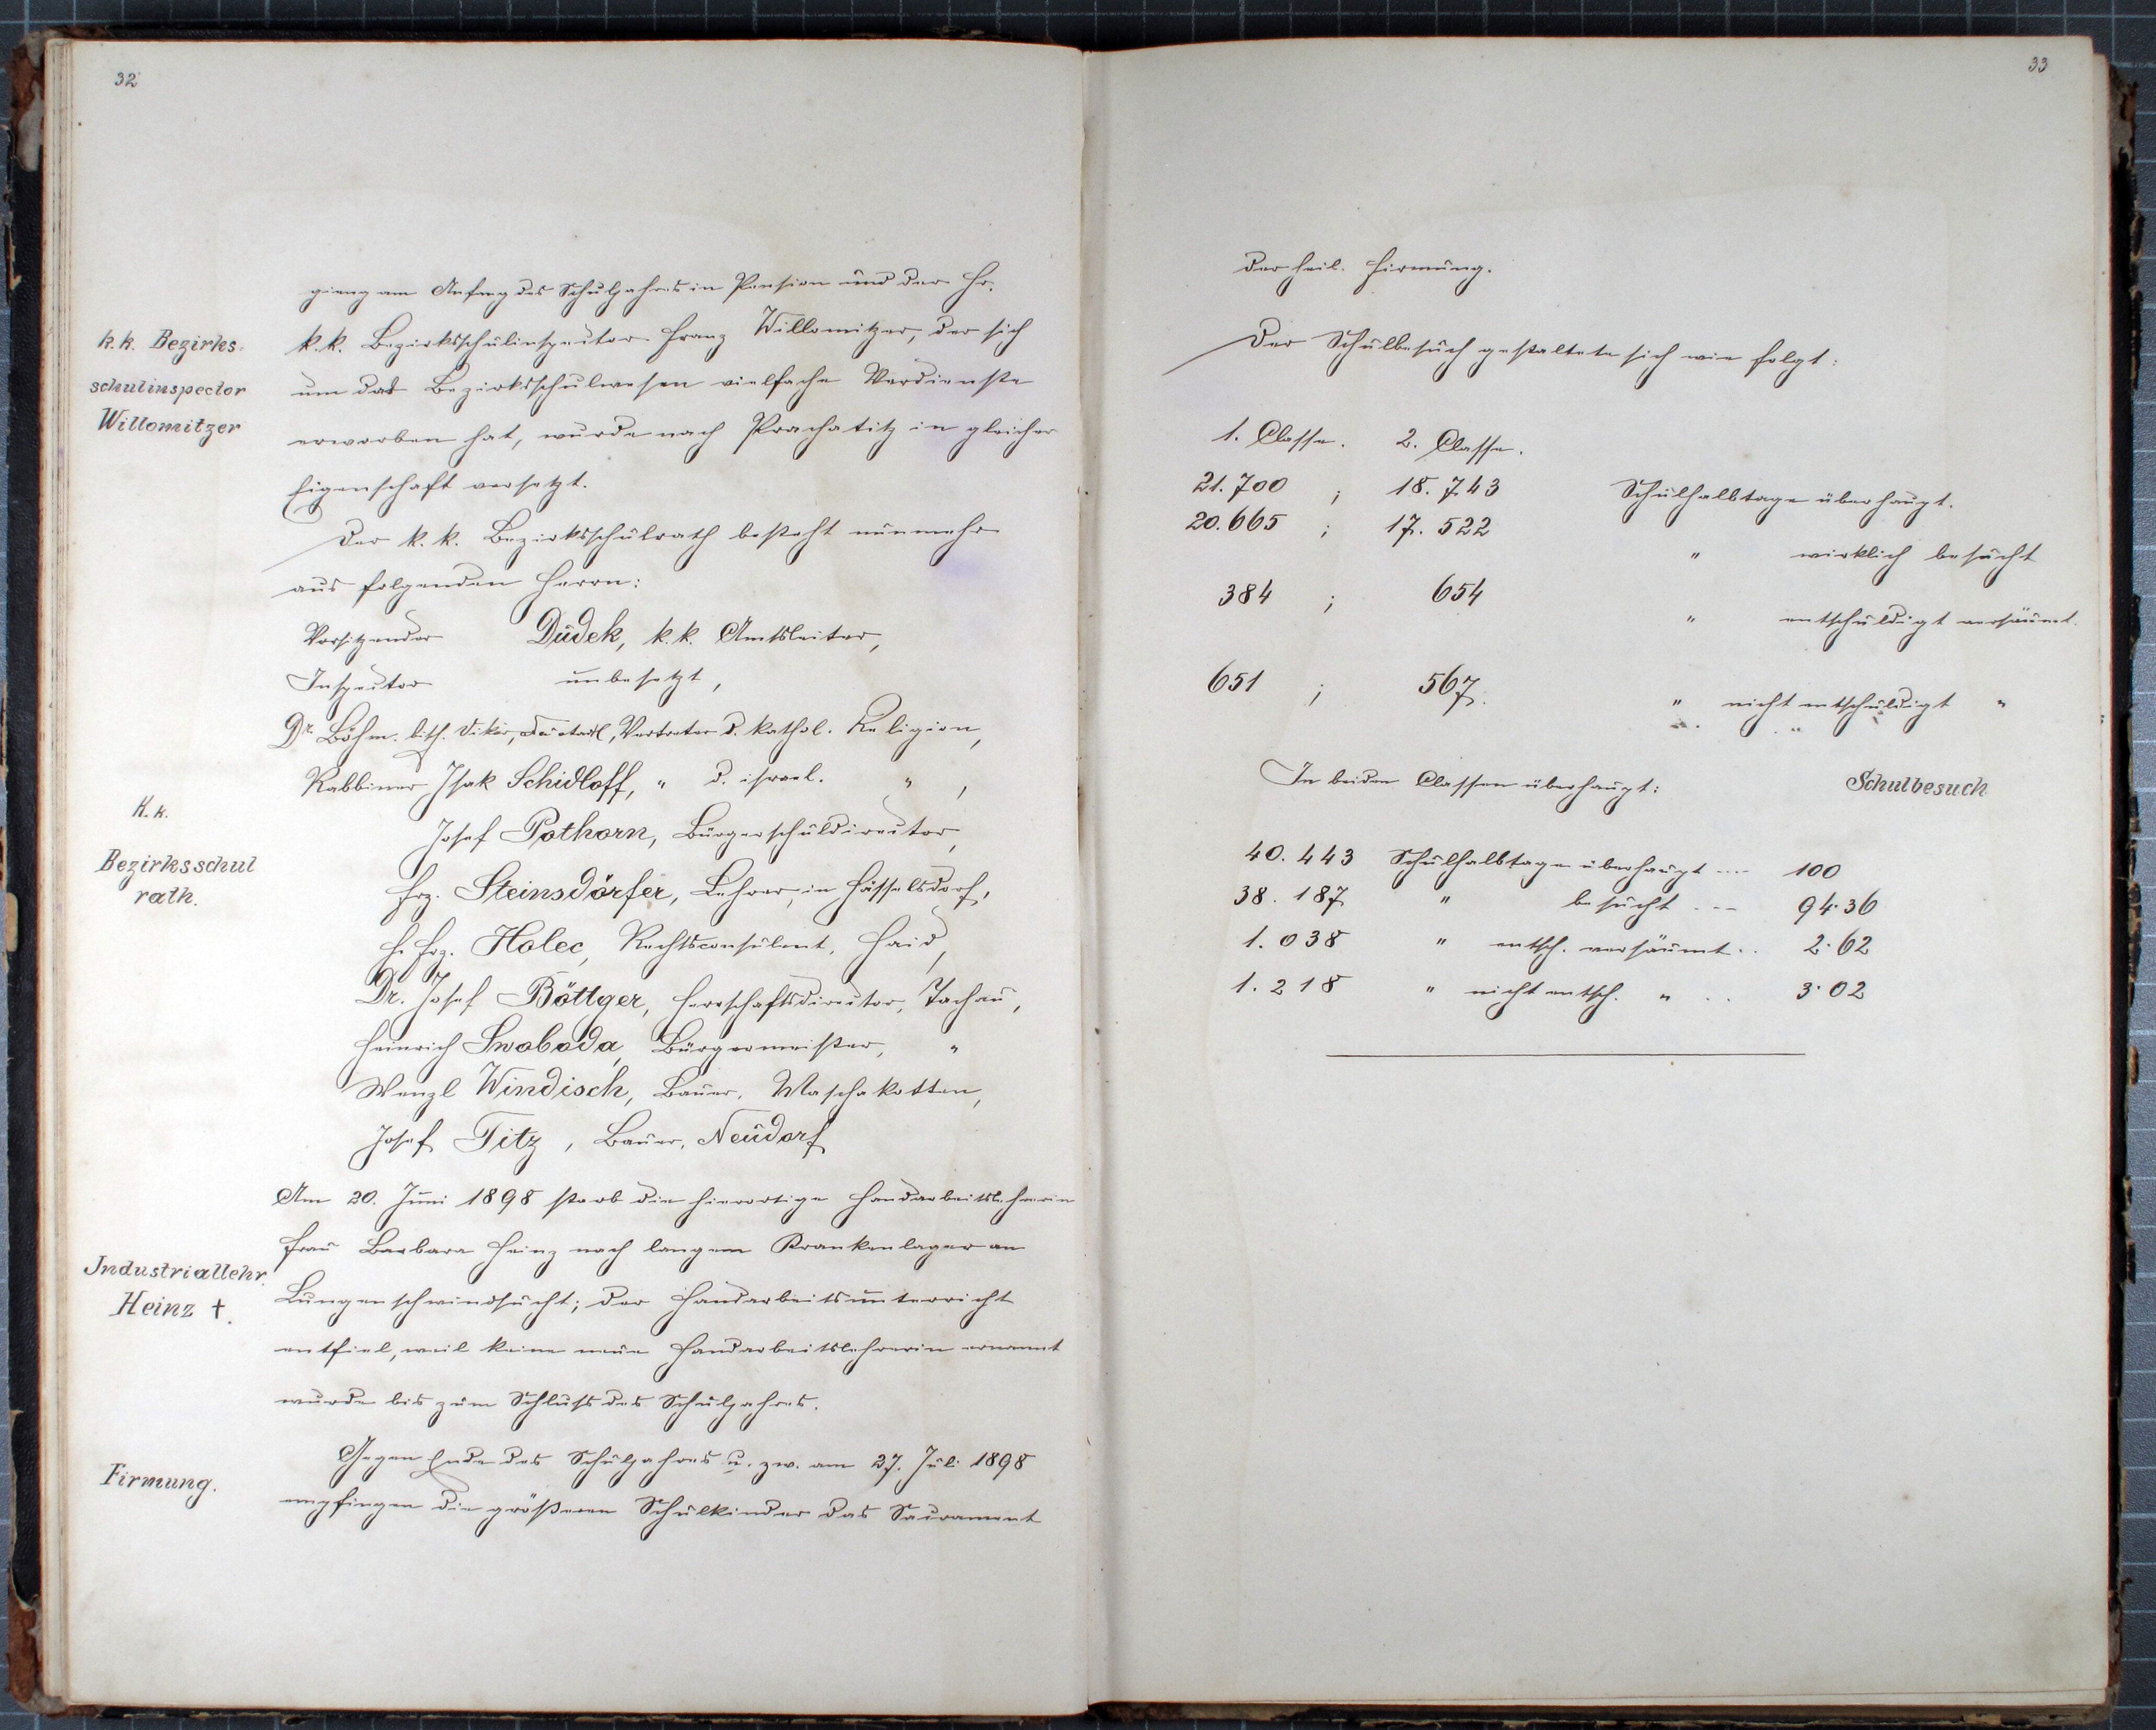 32
gieng am Anfang des Schuljahres in Pension und der Hr.
k. k. Bezirks-
schulinspector
Willomitzer
k. k. Bezirksschulinspector Franz Willomitzer, der sich
um das Bezirksschulwesen vielfache Verdienste
erworben hat, wurde nach Prachatitz in gleicher
Eigenschaft versetzt.
Der k. k. Bezirksschulrath besteht nunmehr
aus folgenden Herrn:
Vorsitzender Dudek, k. k. Amtsleiter,
Inspector unbesetzt,
Dr. Böhm. bish. Vikär, Vertreter d. kathol. Religion,
Rabbiner Isak Schidloff, " d. israel. " ,
K. k.
Bezirksschul
rath.
Josef Pothorn, Bürgerschuldirector,
Frz. Steinsdörfer, Lehrer, in Hösselsdorf,
H. Frz. Holec, Rechtsconsulent, Haid,
Dr. Josef Böttger, Herrschaftsdirector, Tachau,
Heinrich Swoboda, Bürgermeister, "
Wenzl Windisch, Bauer, Maschakotten,
Josef Titz, Bauer, Neudorf
Am 20. Juni 1898 starb die hierortige Handarbeitslehrerin
Industriallehr.
Heinz †.
Frau Barbara Heinz nach langem Krankenlager an
Lungenschwindsucht; der Handarbeitsunterricht
entfiel, weil keine neue Handarbeitslehrerin ernannt
wurde bis zum Schluß des Schuljahres.
Firmung.
Gegen Ende des Schuljahres u. zw. am 27. Juli 1898
empfingen die größeren Schulkinder das Sacrament
33
der heil. Firmung.
Der Schulbesuch gestaltete sich wie folgt:
1. Classe. 2. Classe.
21.700 ; 18.743 Schulhalbtage überhaupt.
20.665 ; 17.522 " wirklich besucht
384 ; 654 " entschuldigt versäumt.
651 ; 567. " nicht entschuldigt "
In beiden Classen überhaupt: Schulbesuch
40.443 Schulhalbtage überhaupt --- 100
38.187 " besucht . -- 94·36
1.038 " entsch. versäumt .. 2·62
1.218 " nicht entsch. " .. 3·02